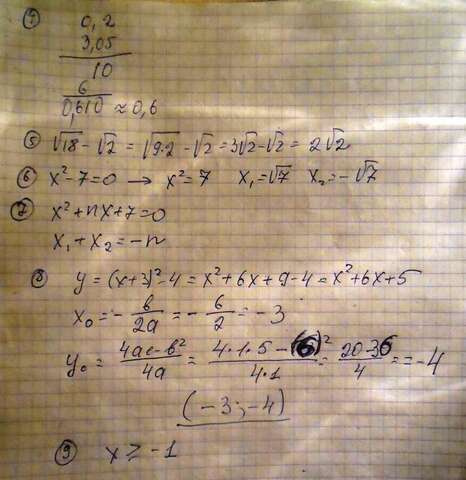 ④ 0,2
3,05
10
6
0,610 ≈ 0,6
⑤ √18 - √2 = √9·2 - √2 = 3√2 - √2 = 2√2
⑥ x²-7=0 → x²=7 x₁=√7 x₂=-√7
⑦ x²+nx+7=0
x₁+x₂=-n
⑧ y=(x+3)²-4=x²+6x+9-4=x²+6x+5
x₀=-в/2a=-6/2=-3
y₀=4ac-в²/4a=4·1·5-(6)²/4·1=20-36/4==-4
(-3;-4)
⑨ x ≥ -1